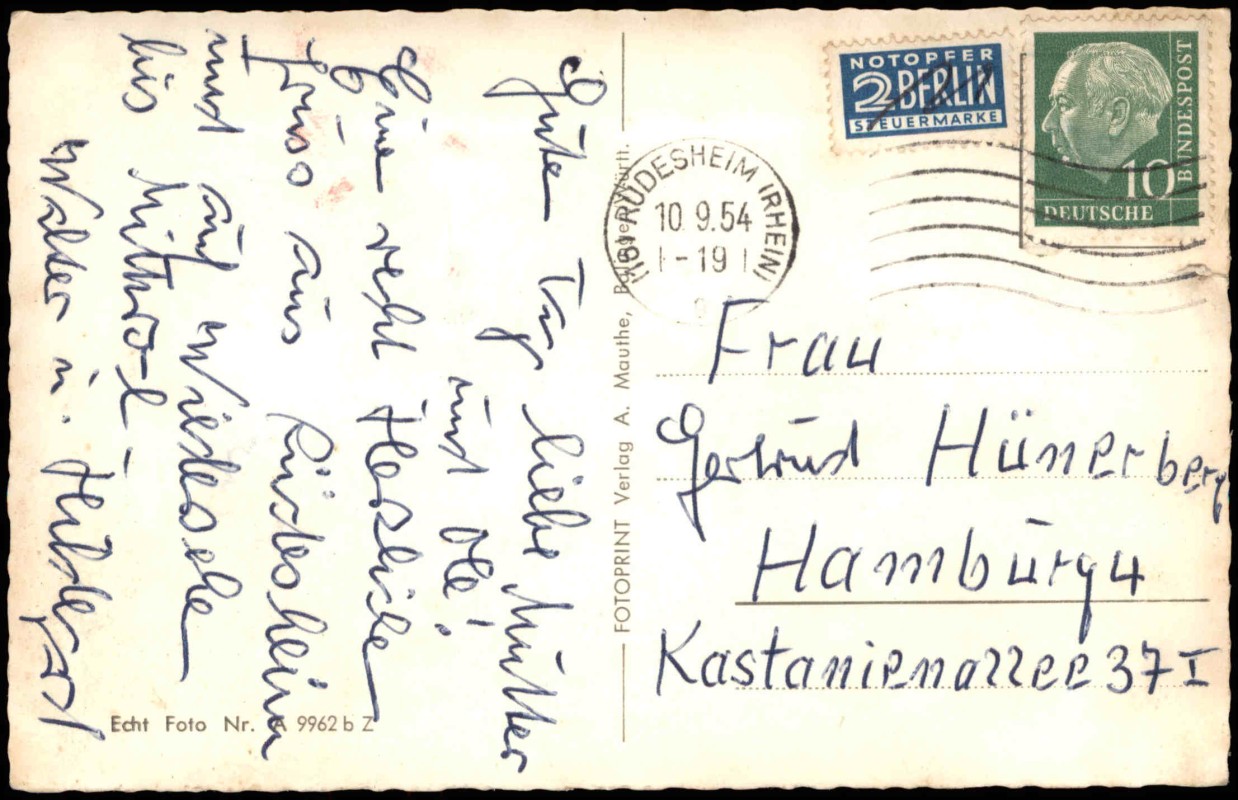 Gute Tag liebe Mutter
und Ole!
Eine recht Herzliche
Grüss aus Rüdesheim
und auf Wiedersehn
bis Mittwoch
Walter u.
NOTOPFER
2 BERLIN
STEUERMARKE
DEUTSCHE
BUNDESPOST
10
RÜDESHEIM (RHEIN)
10.9.54
-19
Frau
Gertrud Hünerberg
Hamburg 4
Kastanienallee 37 I
FOTOPRINT Verlag A. Mauthe,
Echt Foto Nr. A 9962 b Z